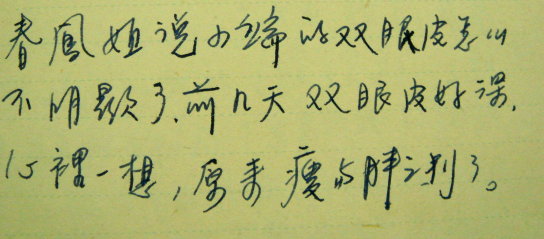 春鳳姐说小綿的双眼皮怎么
不明顯了.前几天双眼皮好深,
心裡一想,原来瘦与胖之别了。